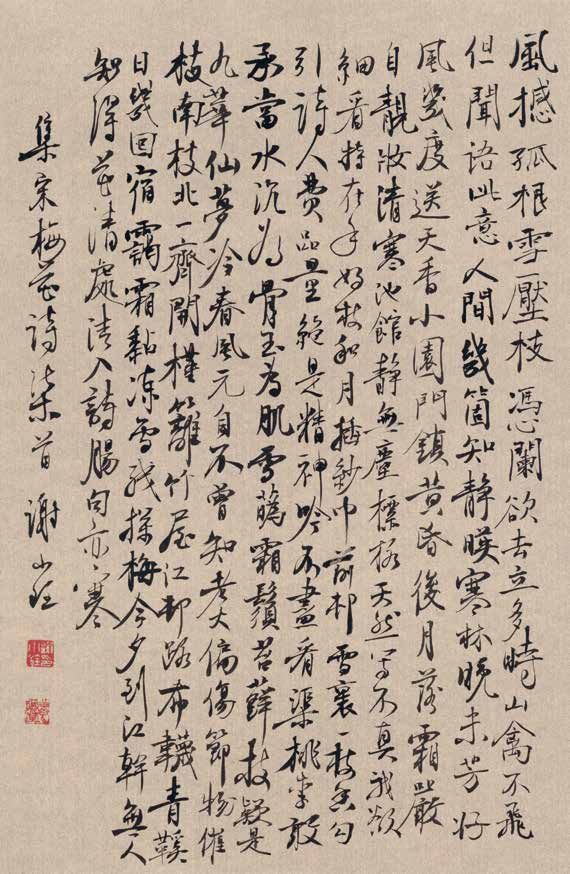 風撼孤根雪壓枝馮闌欲去立多時山禽不飛
但聞語此意人間幾箇知靜暎寒林晚未芳好
風幾度送天香小園門鎖黃昏後月落霜嚴
自靚妝清寒池館靜無塵標格天然寫不真我欲
細看持在手好枝和月插紗巾前邨雪裏一枝香勾
引詩人費品量絕是精神吟不盡看渠桃李敢
承當水沉為骨玉為肌雪霜鬚苔蘚枝疑是
九華仙夢冷春風元自不曾知老大偏傷節物催
枝南枝北一齊開槿籬竹屋江邨路布韈青鞵
日幾回宿靄霜黏凍雪殘探梅今夕到江幹無人
知得花清處清入詩腸句亦寒
集宋梅花詩柒首 謝小